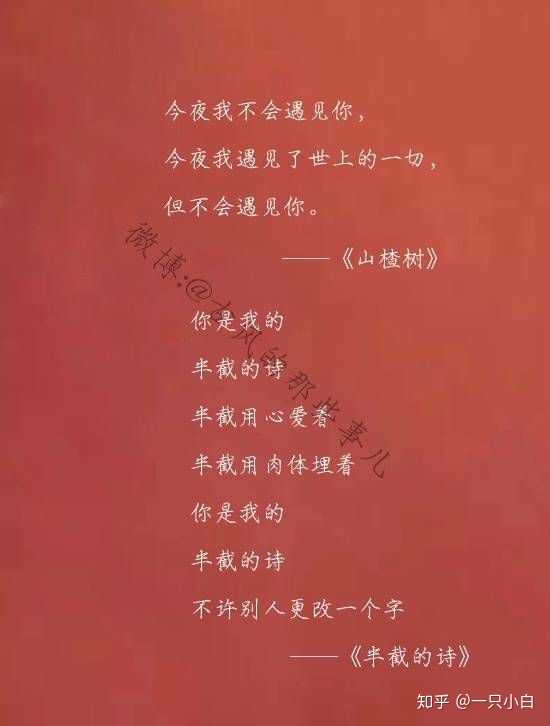 今夜我不会遇见你，
今夜我遇见了世上的一切，
但不会遇见你。
——《山楂树》
微博:@古风的那些事儿
你是我的
半截的诗
半截用心爱着
半截用肉体埋着
你是我的
半截的诗
不许别人更改一个字
——《半截的诗》
知乎 @一只小白